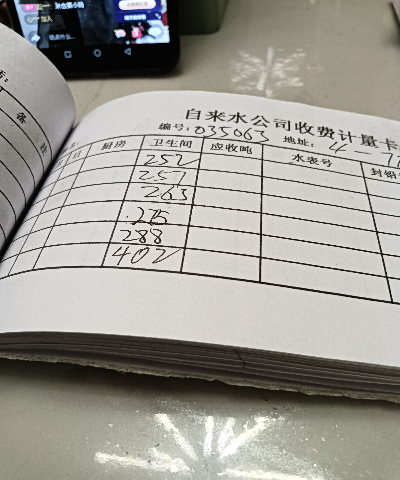 自来水公司收费计量卡
编号: 035063 地址: 4-7
日 厨房 卫生间 应收吨 水表号 封铅
252
257
263
275
288
402
备注